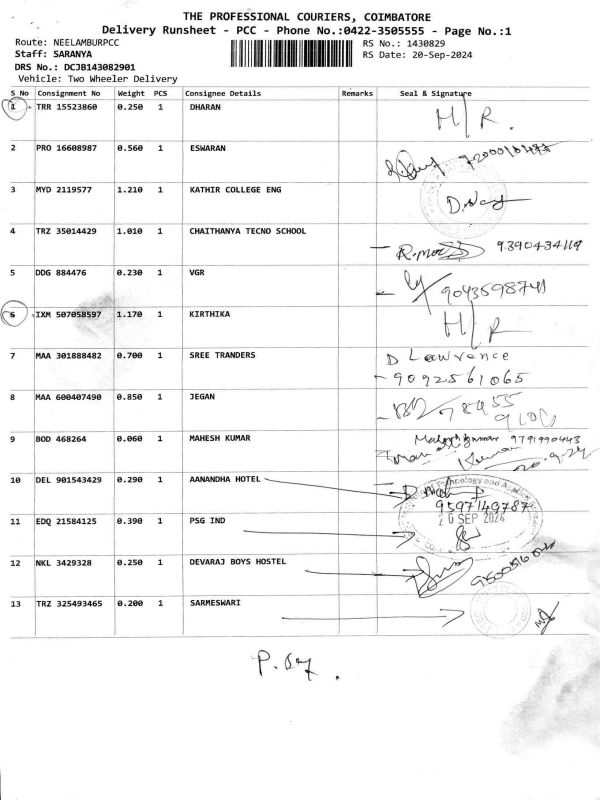 THE PROFESSIONAL COURIERS, COIMBATORE
Delivery Runsheet - PCC - Phone No.:0422-3505555 - Page No.:1
Route: NEELAMBURPCC RS No.: 1430829
Staff: SARANYA RS Date: 20-Sep-2024
DRS No.: DCJB143082901
Vehicle: Two Wheeler Delivery
S_No Consignment No Weight PCS Consignee Details Remarks Seal & Signature
1 TRR 15523860 0.250 1 DHARAN H/R.
2 PRO 16608987 0.560 1 ESWARAN
3 MYD 2119577 1.210 1 KATHIR COLLEGE ENG
4 TRZ 35014429 1.010 1 CHAITHANYA TECNO SCHOOL 9390434119
5 DDG 884476 0.230 1 VGR 9043598741
6 IXM 507058597 1.170 1 KIRTHIKA H/R
7 MAA 301888482 0.700 1 SREE TRANDERS D Lawrence
- 9092561065
8 MAA 600407490 0.850 1 JEGAN
9 BOD 468264 0.060 1 MAHESH KUMAR 9791990443
20-9-24
10 DEL 901543429 0.290 1 AANANDHA HOTEL
9597149787
11 EDQ 21584125 0.390 1 PSG IND 20 SEP 2024
12 NKL 3429328 0.250 1 DEVARAJ BOYS HOSTEL
13 TRZ 325493465 0.200 1 SARMESWARI